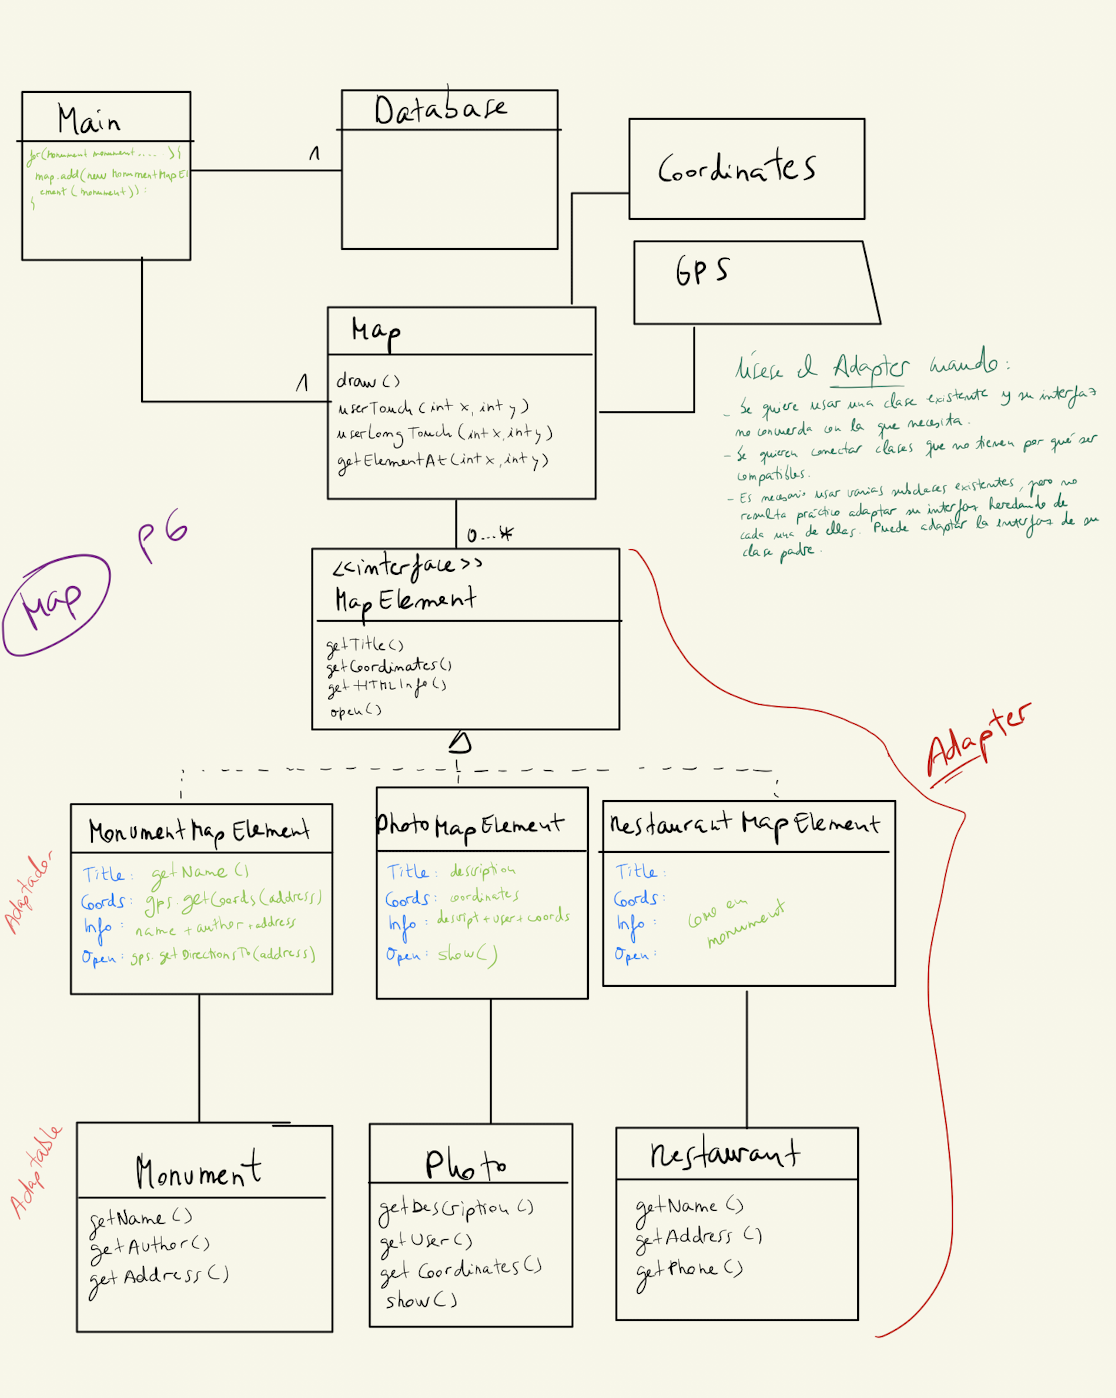 Main
for(Monument monument.... ){
map.add(new MonumentMapEl
ement(monument)):
}
1
Database
Coordinates
GPS
Map
draw()
userTouch(int x, int y)
userLongTouch(int x, int y)
getElementAt(int x, int y)
1
0...*
Úsese el Adapter cuando:
- Se quiere usar una clase existente y su interfaz
no concuerda con la que necesita.
- Se quieren conectar clases que no tienen por qué ser
compatibles.
- Es necesario usar varias subclases existentes, pero no
resulta práctico adaptar su interfaz heredando de
cada una de ellas. Puede adaptar la interfaz de su
clase padre.
P6
Map
<<interface>>
MapElement
getTitle()
getCoordinates()
getHTMLInfo()
open()
Adapter
Adaptador
MonumentMapElement
Title: getName()
Coords: gps.getCoords(address)
Info: name + author + address
Open: gps.getDirectionsTo(address)
PhotoMapElement
Title: description
Coords: coordinates
Info: descript + user + coords
Open: show()
RestaurantMapElement
Title:
Coords:
Info:
Open:
como en
monument
Adaptable
Monument
getName()
getAuthor()
getAddress()
Photo
getDescription()
getUser()
getCoordinates()
show()
Restaurant
getName()
getAddress()
getPhone()